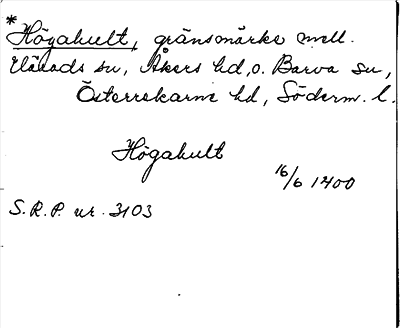 *
Högakult, gränsmärke mell.
Vårads sn, Åkers hd, o. Barva sn,
Österrekarne hd, Söderm. l.
Högakult
16/6 1400
S.R.P. nr. 3103